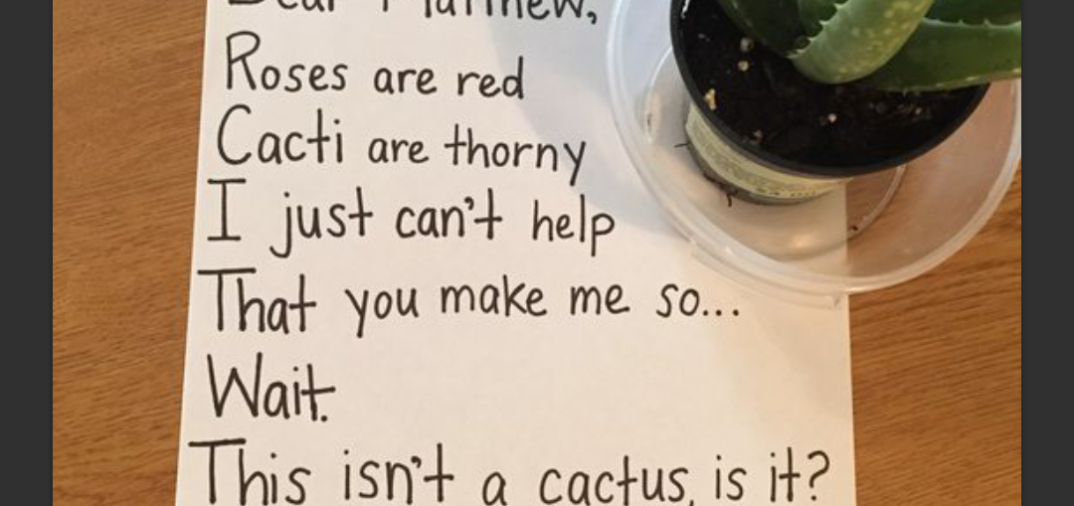 Dear Matthew,
Roses are red
Cacti are thorny
I just can't help
That you make me so...
Wait.
This isn't a cactus, is it?